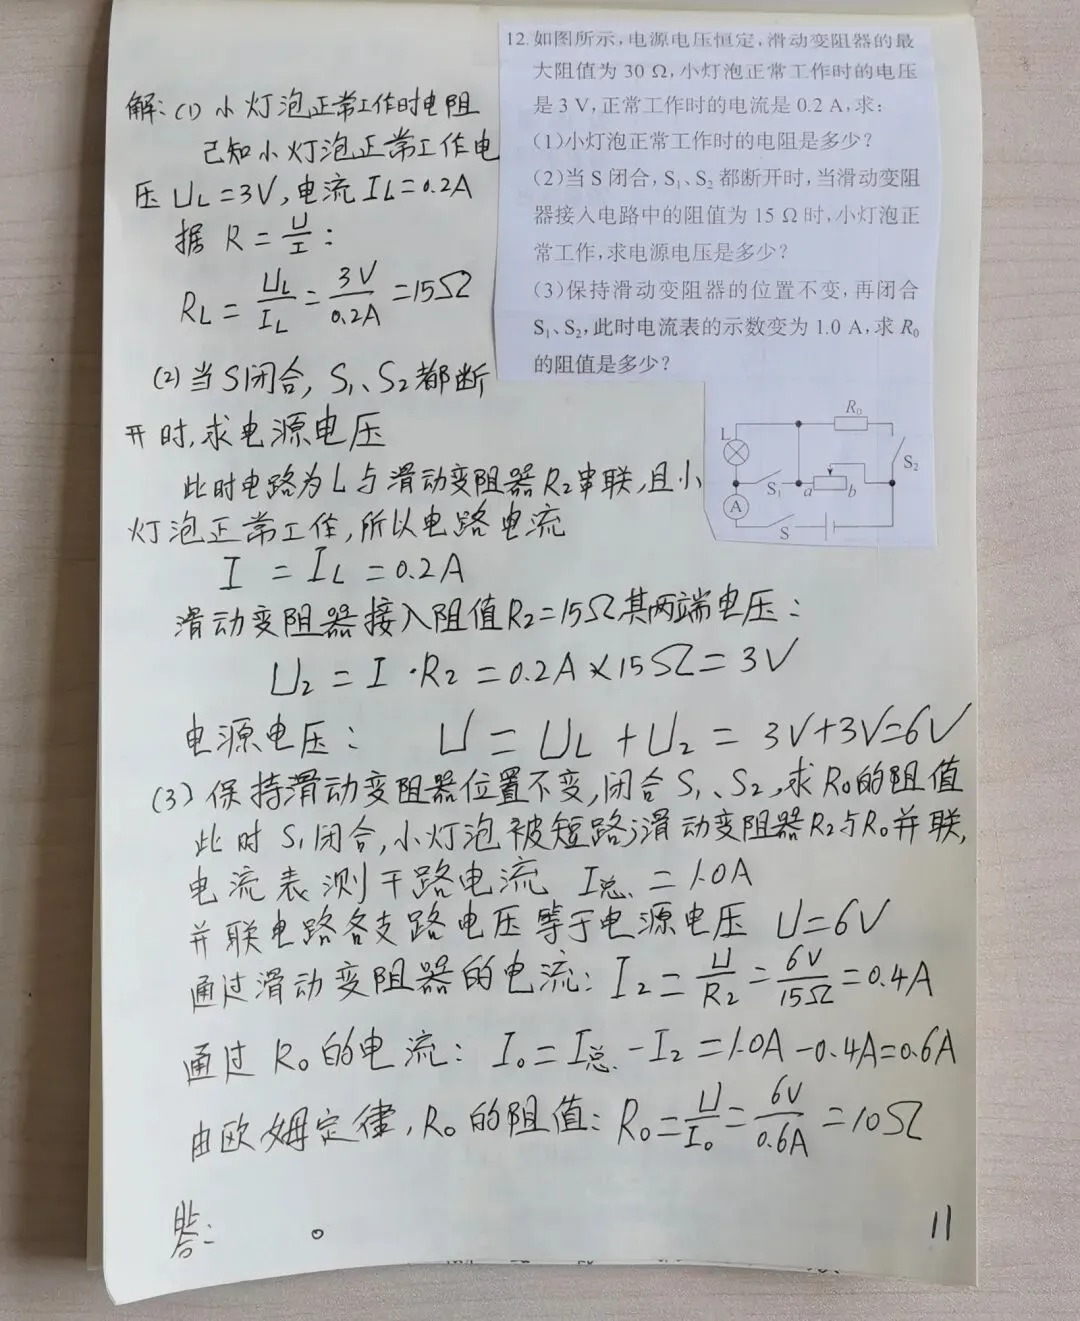 12. 如图所示,电源电压恒定,滑动变阻器的最
大阻值为 30 Ω,小灯泡正常工作时的电压
是 3 V,正常工作时的电流是 0.2 A,求:
(1)小灯泡正常工作时的电阻是多少?
(2)当 S 闭合, S₁、S₂ 都断开时,当滑动变阻
器接入电路中的阻值为 15 Ω 时,小灯泡正
常工作,求电源电压是多少?
(3)保持滑动变阻器的位置不变,再闭合
S₁、S₂,此时电流表的示数变为 1.0 A,求 R₀
的阻值是多少?
R₀
L
S₂
S₁ a b
A
S
解:(1) 小灯泡正常工作时电阻
已知小灯泡正常工作电
压 U_L=3V,电流 I_L=0.2A
据 R=U/I:
R_L=U_L/I_L=3V/0.2A=15Ω
(2) 当S闭合, S₁、S₂都断
开时,求电源电压
此时电路为L与滑动变阻器R₂串联,且小
灯泡正常工作,所以电路电流
I=I_L=0.2A
滑动变阻器接入阻值R₂=15Ω其两端电压:
U₂=I·R₂=0.2A×15Ω=3V
电源电压: U=U_L+U₂=3V+3V=6V
(3) 保持滑动变阻器位置不变,闭合S₁、S₂,求R₀的阻值
此时S₁闭合,小灯泡被短路;滑动变阻器R₂与R₀并联,
电流表测干路电流 I总=1.0A
并联电路各支路电压等于电源电压 U=6V
通过滑动变阻器的电流: I₂=U/R₂=6V/15Ω=0.4A
通过R₀的电流: I₀=I总-I₂=1.0A-0.4A=0.6A
由欧姆定律,R₀的阻值: R₀=U/I₀=6V/0.6A=10Ω
答: 。
11